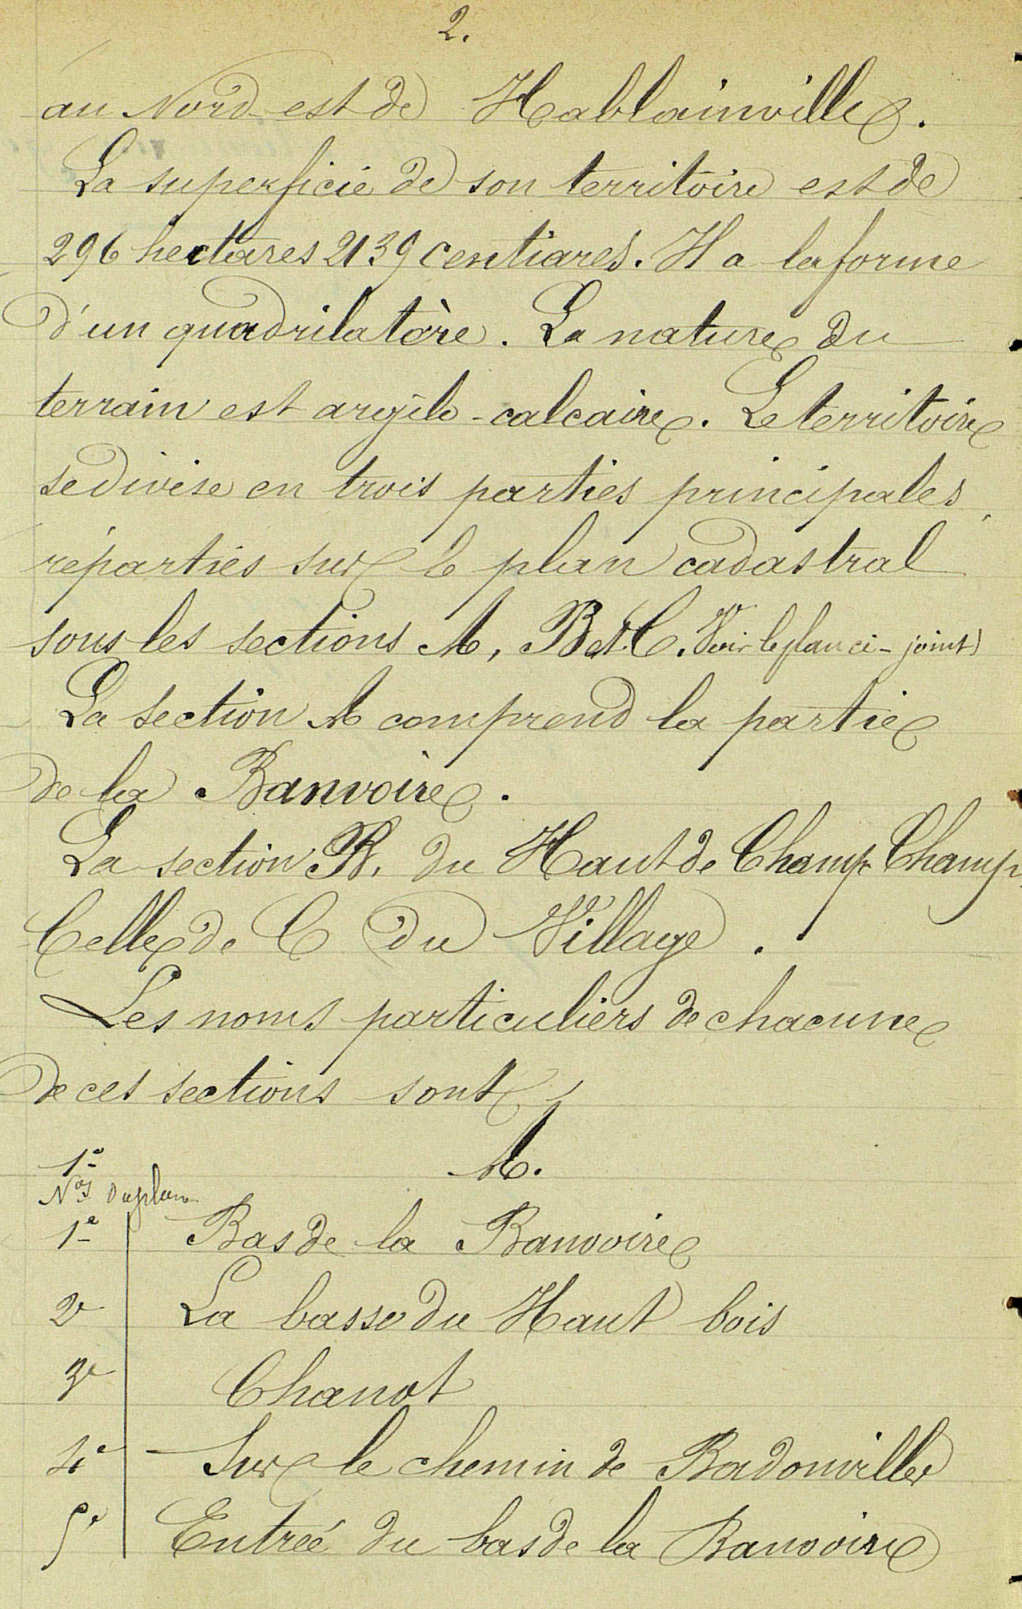 2.
au Nord-est de Hablainville.
La superficie de son territoire est de
296 hectares 2139 centiares. Il a la forme
d'un quadrilatère. La nature du
terrain est argilo-calcaire. Le territoire
se divise en trois parties principales
réparties sur le plan cadastral
sous les sections A, B et C. Voir le plan ci-joint)
La section A comprend la partie
de la Banvoire.
La section B. du Haut de Champ Champ
Celle de C du Village.
Les noms particuliers de chacune
de ces sections sont,
1e A.
Nos du plan
1e Bas de la Banvoire
2e La basse du Haut bois
3e Chanot
4e Sur le chemin de Badonviller
5e Entrée du bas de la Banvoire